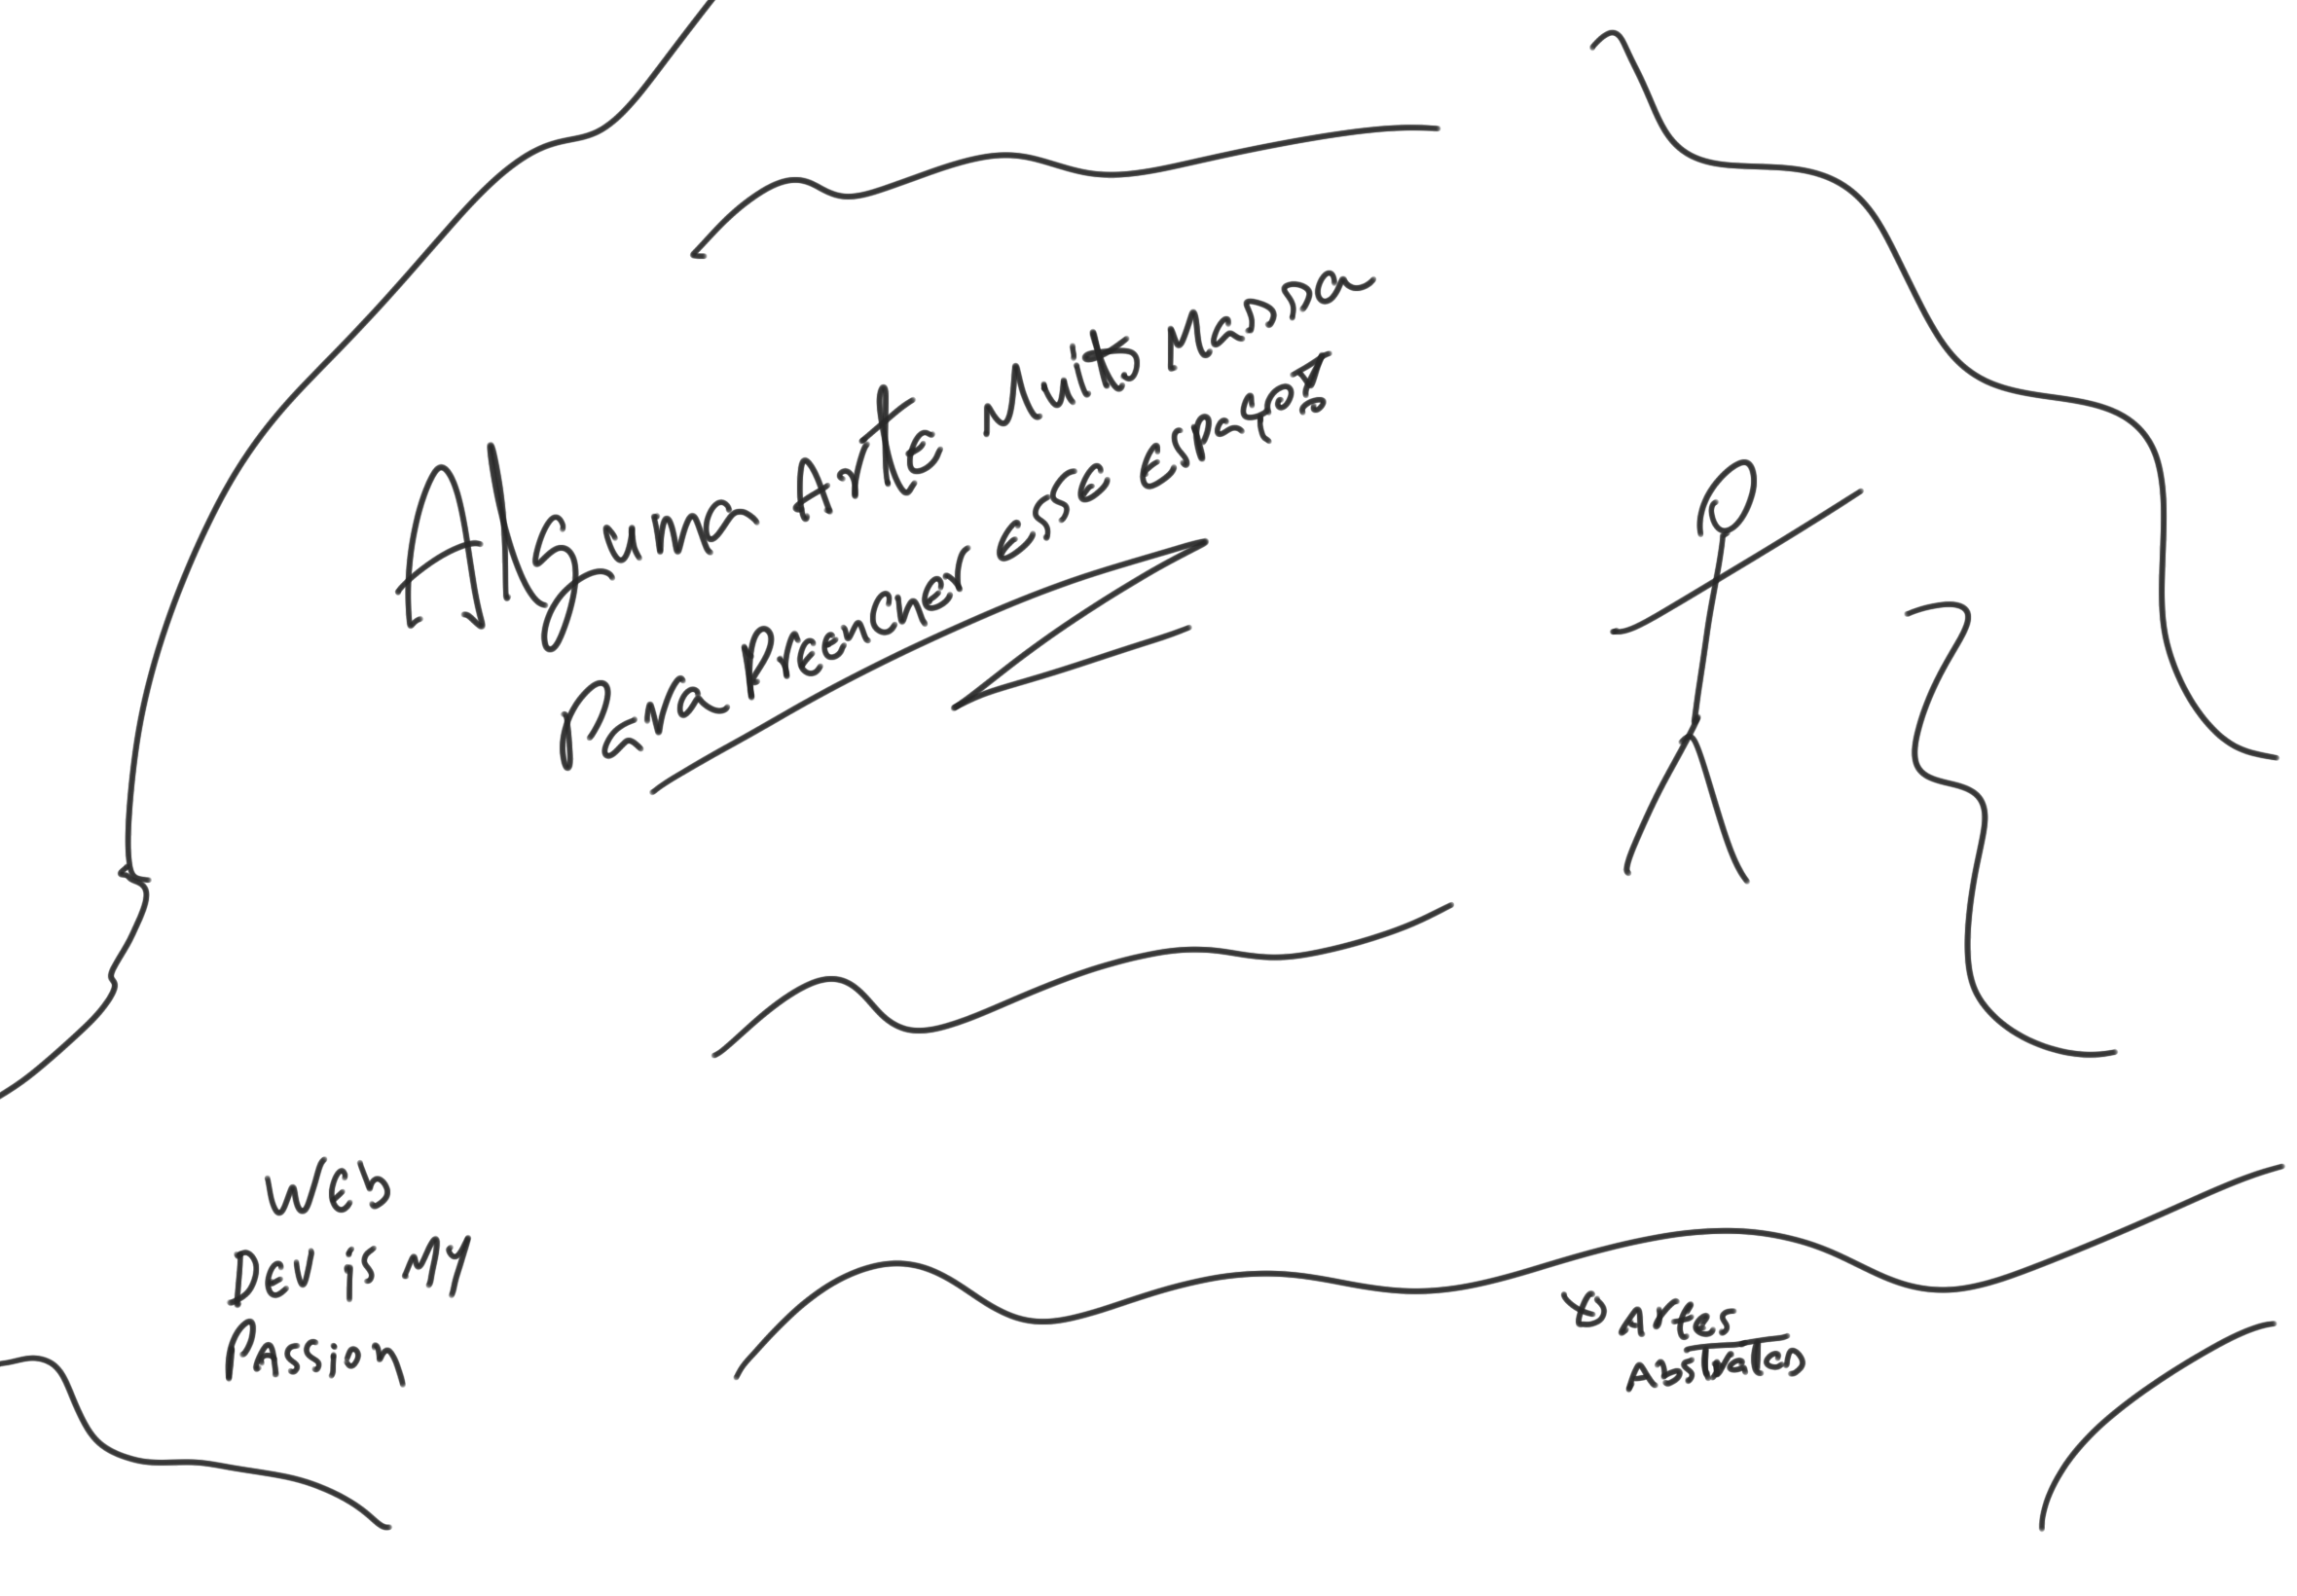 Alguma Arte Muito Massa
Pra Preencher esse espaço
Web
Dev is my
Passion
Artes
Abstratas